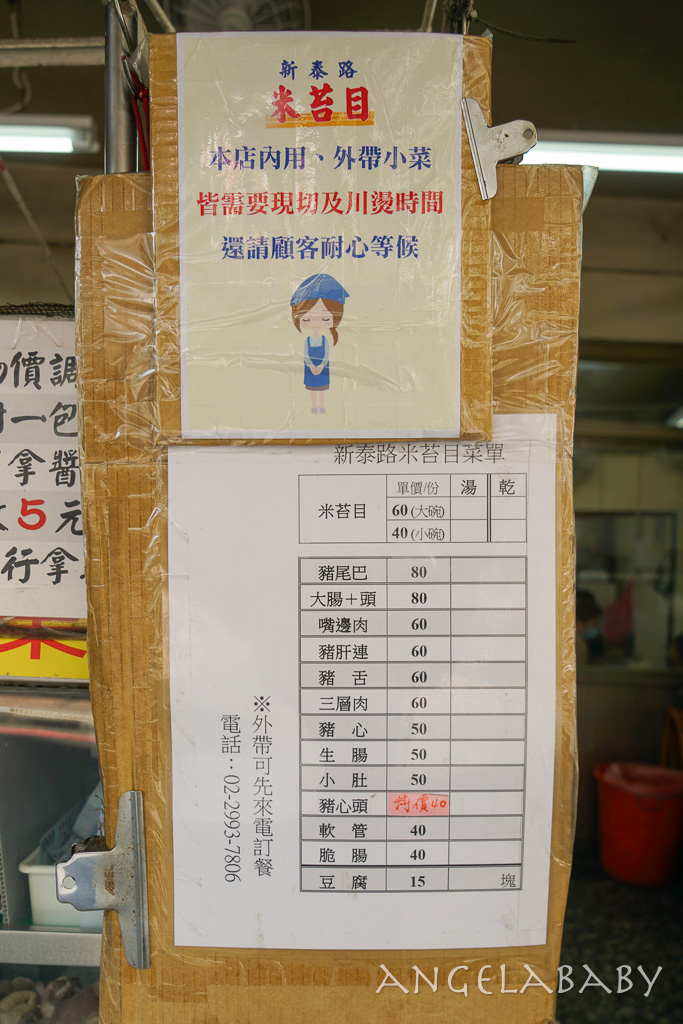 新泰路
米苔目
本店內用、外帶小菜
皆需要現切及川燙時間
還請顧客耐心等候
價調
一包
拿醬
5元
行拿
新泰路米苔目菜單
單價/份 湯 乾
米苔目 60(大碗)
40(小碗)
豬尾巴 80
大腸+頭 80
嘴邊肉 60
豬肝連 60
豬舌 60
三層肉 60
豬心 50
生腸 50
小肚 50
豬心頭 特價40
軟管 40
脆腸 40
豆腐 15 塊
※外帶可先來電訂餐
電話：02-2993-7806
ANGELABABY